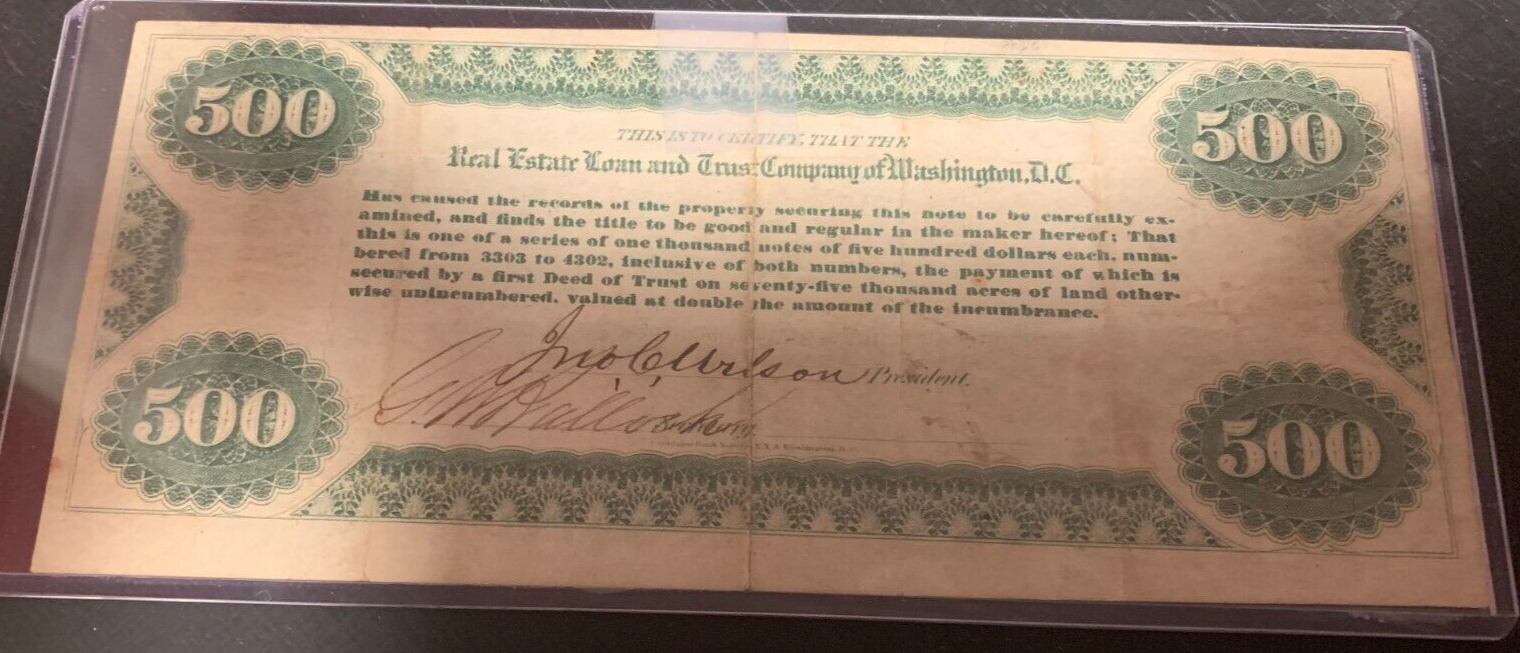 500
500
THIS IS TO CERTIFY, THAT THE
Real Estate Loan and Trust Company of Washington, D.C.
Has caused the records of the property securing this note to be carefully ex-
amined, and finds the title to be good and regular in the maker hereof; That
this is one of a series of one thousand notes of five hundred dollars each, num-
bered from 3303 to 4302, inclusive of both numbers, the payment of which is
secured by a first Deed of Trust on seventy-five thousand acres of land other-
wise unincumbered, valued at double the amount of the incumbrance.
Jno C Wilson President.
Secretary.
500
500